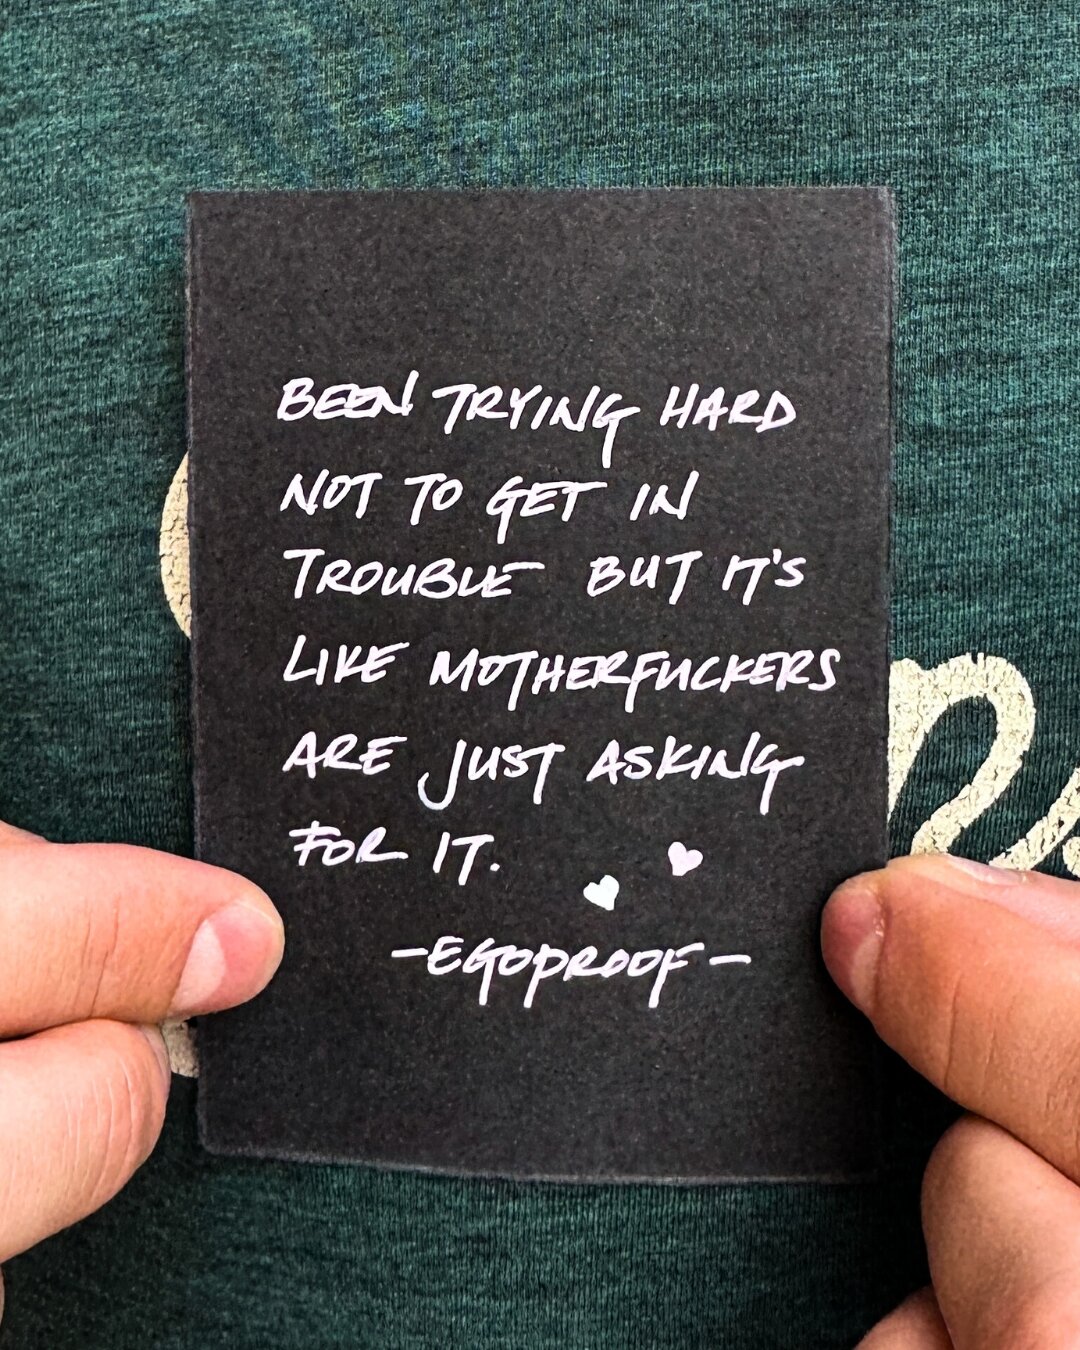 BEEN TRYING HARD
NOT TO GET IN
TROUBLE BUT IT'S
LIKE MOTHERFUCKERS
ARE JUST ASKING
FOR IT.
-EGOPROOF-